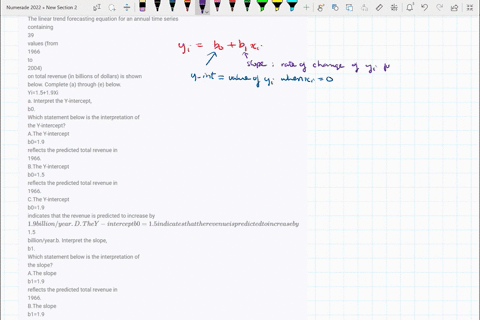 Numerade 2022 » New Section 2
The linear trend forecasting equation for an annual time series
containing
39
values (from
1966
to
2004)
on total revenue (in billions of dollars) is shown
below. Complete (a) through (e) below.
Yi=1.5+1.9Xi
a. Interpret the Y-intercept,
b0.
Which statement below is the interpretation of
the Y-intercept?
A.The Y-intercept
b0=1.9
reflects the predicted total revenue in
1966.
B.The Y-intercept
b0=1.5
reflects the predicted total revenue in
1966.
C.The Y-intercept
b0=1.9
indicates that the revenue is predicted to increase by
1.9billion/year.D.TheY−interceptb0=1.5indicatesthattherevenueispredictedtoincreaseby
1.5
billion/year.b. Interpret the slope,
b1.
Which statement below is the interpretation of
the slope?
A.The slope
b1=1.9
reflects the predicted total revenue in
1966.
B.The slope
b1=1.9
yi = b0 + b1 xi
slope : rate of change of yi
y-int = value of yi when xi = 0